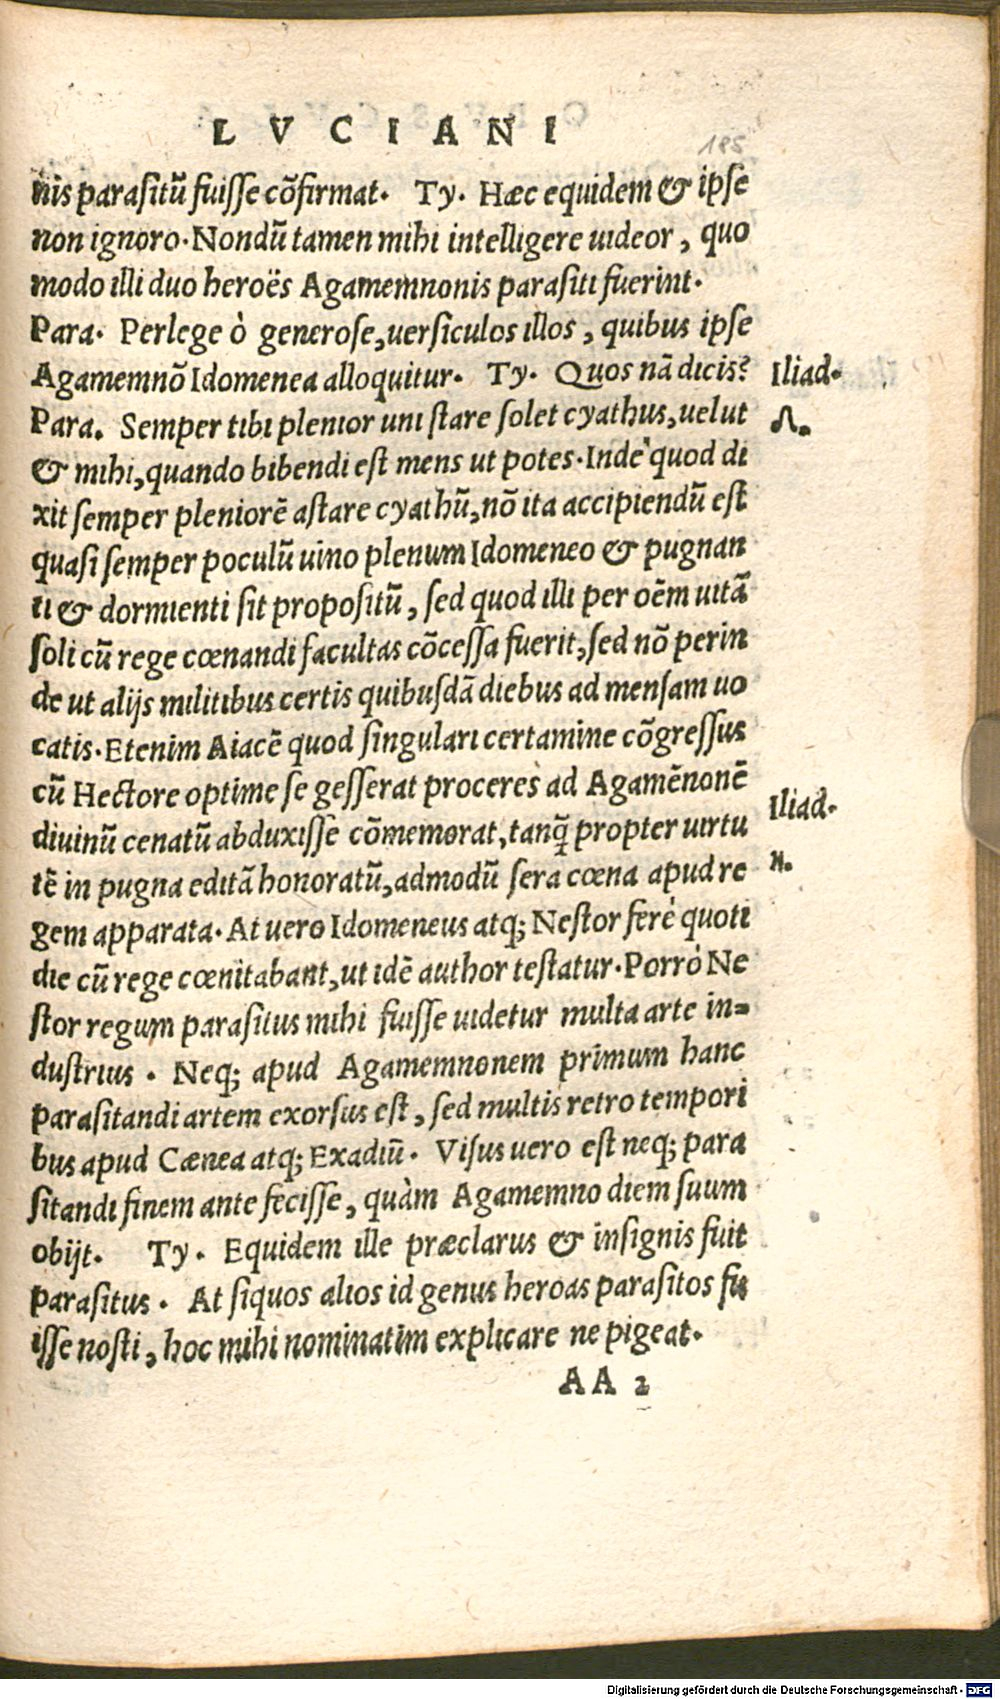 LVCIANI
185
nis parasitũ fuisse cõfirmat. Ty. Hæc equidem & ipse
non ignoro. Nondũ tamen mihi intelligere uideor, quo
modo illi duo heroës Agamemnonis parasiti fuerint.
Para. Perlege ò generose, uersiculos illos, quibus ipse
Agamemnõ Idomenea alloquitur. Ty. Quos nã dicis?
Iliad.
Λ.
Para. Semper tibi plenior uni stare solet cyathus, uelut
& mihi, quando bibendi est mens ut potes. Inde quod di
xit semper pleniorẽ astare cyathũ, nõ ita accipiendũ est
quasi semper poculũ uino plenum Idomeneo & pugnan
ti & dormienti sit propositũ, sed quod illi per oẽm uitã
soli cũ rege cœnandi facultas cõcessa fuerit, sed nõ perin
de ut alijs militibus certis quibusdã diebus ad mensam uo
catis. Etenim Aiacẽ quod singulari certamine cõgressus
cũ Hectore optime se gesserat proceres ad Agamẽnonẽ
Iliad.
diuinũ cenatũ abduxisse cõmemorat, tanq̃ propter uirtu
H.
tẽ in pugna editã honoratũ, admodũ sera cœna apud re
gem apparata. At uero Idomeneus atq; Nestor ferè quoti
die cũ rege cœnitabant, ut idẽ author testatur. Porrò Ne
stor regum parasitus mihi fuisse uidetur multa arte in=
dustrius. Neq; apud Agamemnonem primum hanc
parasitandi artem exorsus est, sed multis retro tempori
bus apud Cænea atq; Exadiũ. Visus uero est neq; para
sitandi finem ante fecisse, quàm Agamemno diem suum
obijt. Ty. Equidem ille præclarus & insignis fuit
parasitus. At siquos alios id genus heroas parasitos fu
isse nosti, hoc mihi nominatim explicare ne pigeat.
AA 2
Digitalisierung gefördert durch die Deutsche Forschungsgemeinschaft - DFG